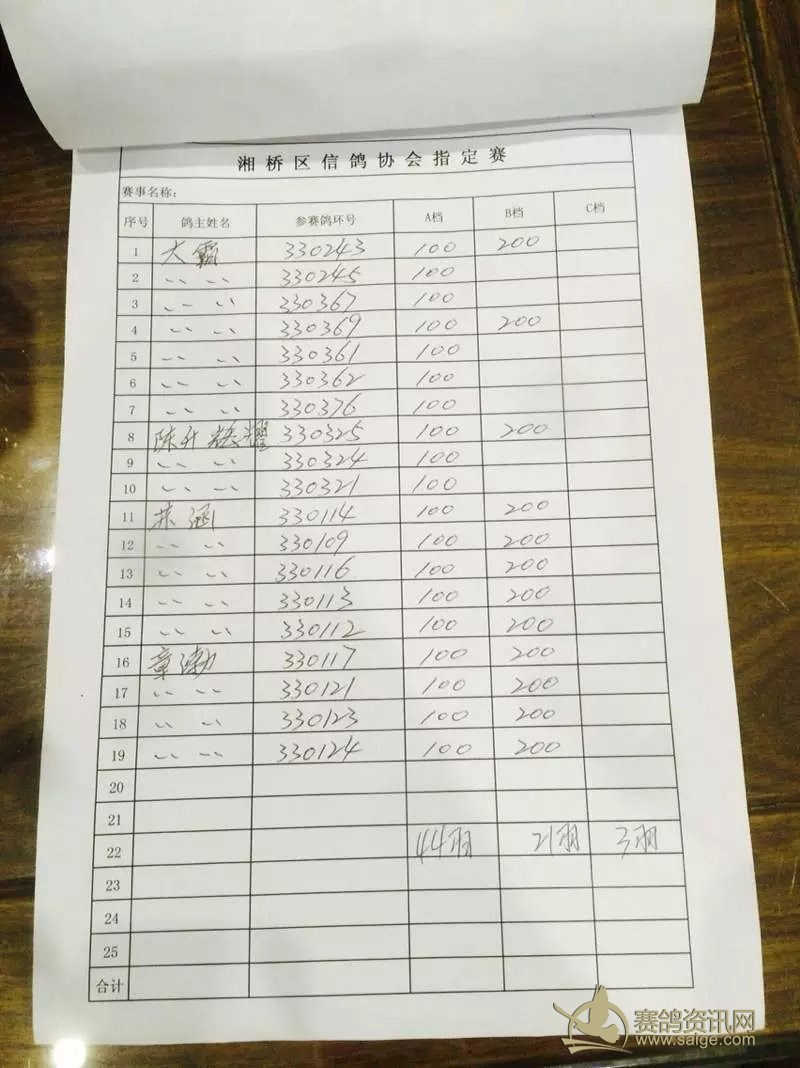 湘桥区信鸽协会指定赛
赛事名称：
序号 鸽主姓名 参赛鸽环号 A档 B档 C档
1 大霸 330243 100 200
2 〃 〃 330245 100
3 〃 〃 330367 100
4 〃 〃 330369 100 200
5 〃 〃 330361 100
6 〃 〃 330362 100
7 〃 〃 330376 100
8 陈 330325 100 200
9 〃 〃 330324 100
10 〃 〃 330321 100
11 涵 330114 100 200
12 〃 〃 330109 100 200
13 〃 〃 330116 100 200
14 〃 〃 330113 100 200
15 〃 〃 330112 100 200
16 章勃 330117 100 200
17 〃 〃 330121 100 200
18 〃 〃 330123 100 200
19 〃 〃 330124 100 200
20
21
22 44羽 21羽 3羽
23
24
25
合计
赛鸽资讯网
www.saige.com